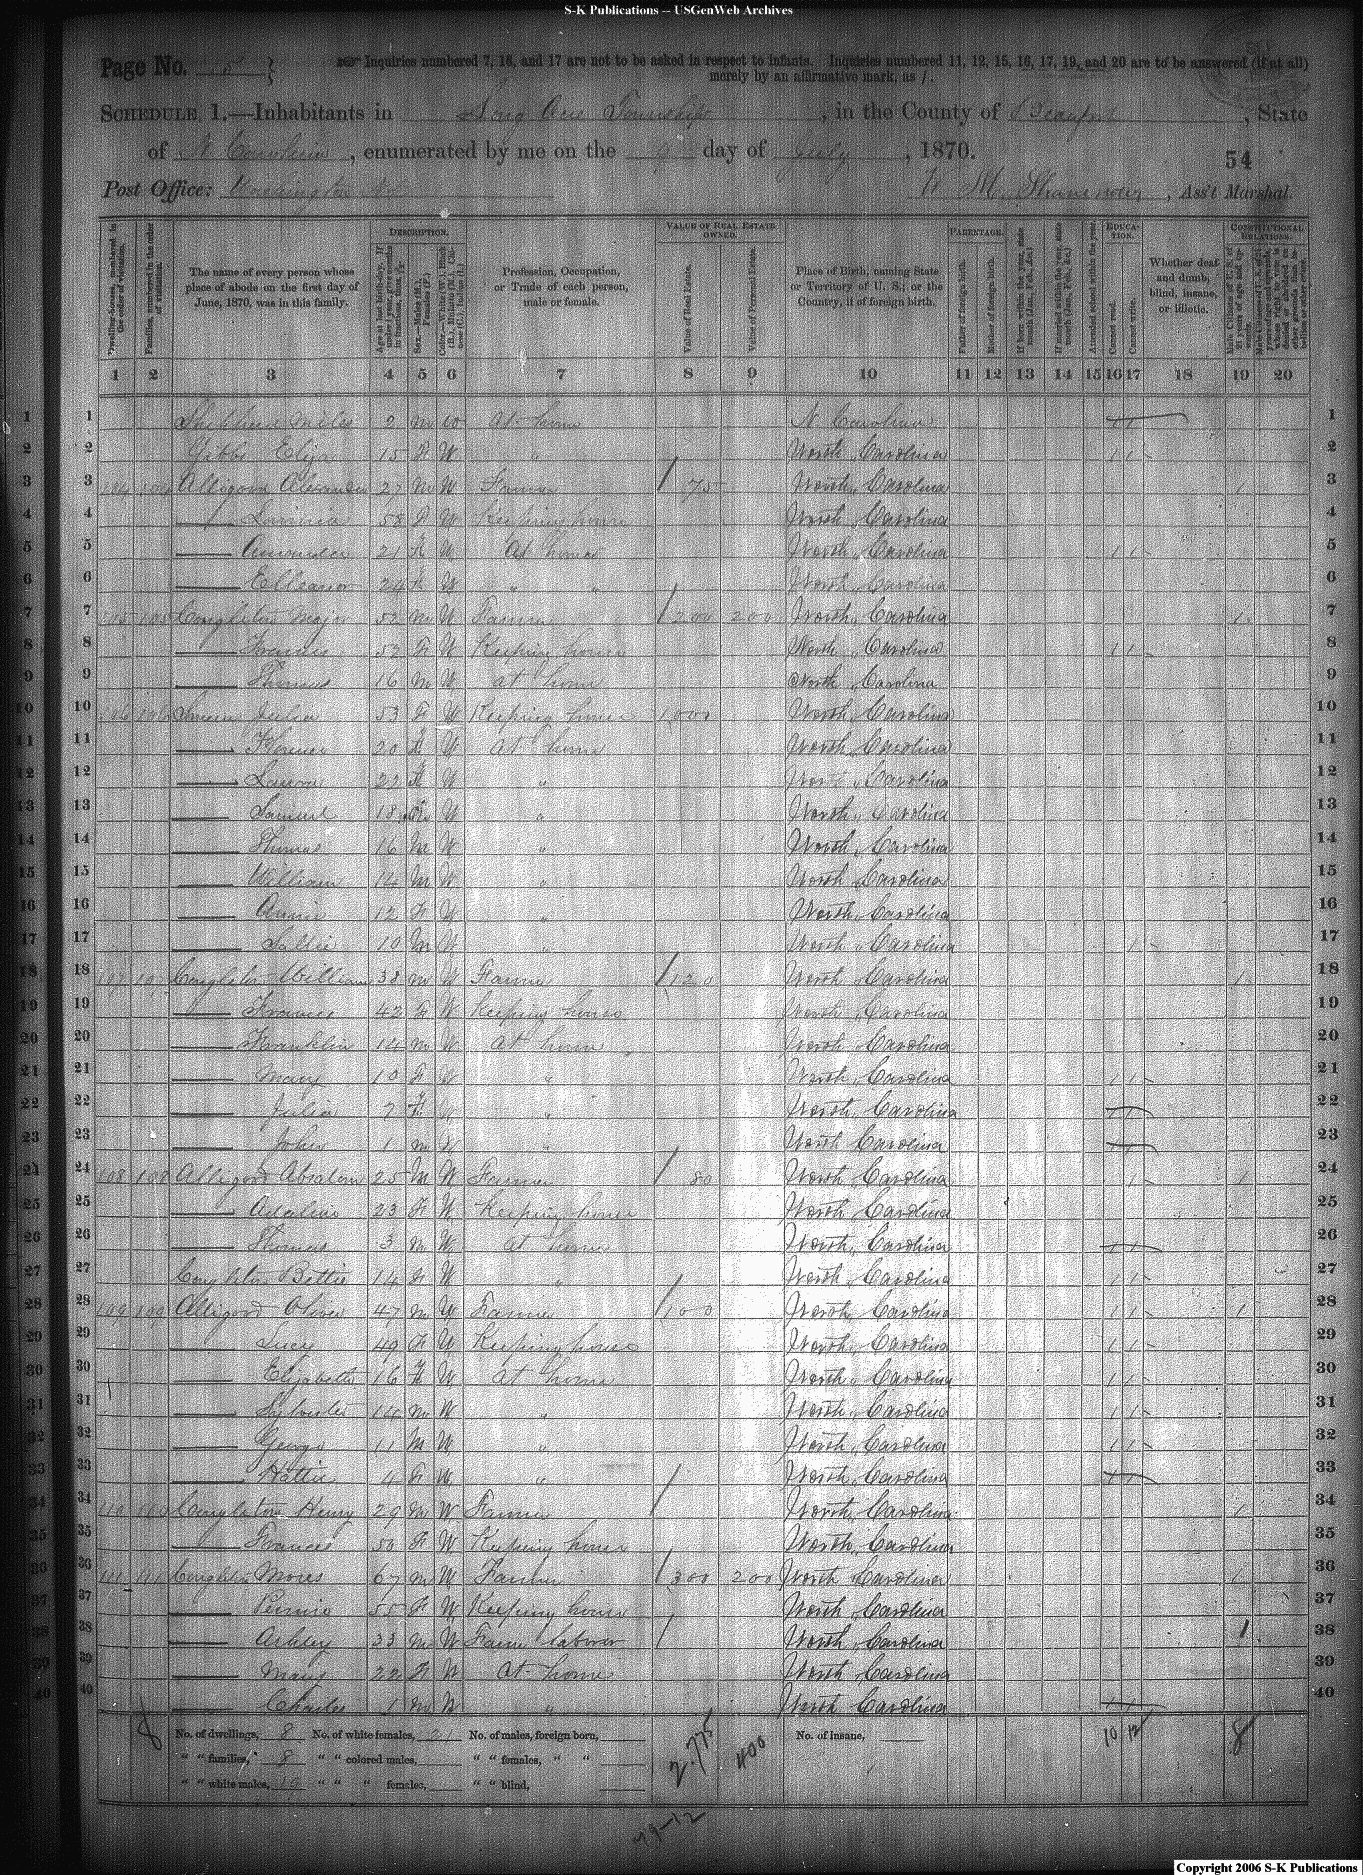 S-K Publications -- USGenWeb Archives
Page No. 5
Inquiries numbered 7, 16, and 17 are not to be asked in respect to infants. Inquiries numbered 11, 12, 15, 16, 17, 19, and 20 are to be answered (if at all)
merely by an affirmative mark, as /.
SCHEDULE 1.—Inhabitants in Long Acre Township, in the County of Beaufort, State
of N Carolina, enumerated by me on the day of July, 1870.
54
Post Office: Washington NC W M, Ass't Marshal.
DESCRIPTION. VALUE OF REAL ESTATE OWNED. PARENTAGE. EDUCATION. CONSTITUTIONAL RELATIONS.
Dwelling-houses, numbered in the order of visitation.
Families, numbered in the order of visitation.
The name of every person whose place of abode on the first day of June, 1870, was in this family.
Age at last birth-day. If under 1 year, give months in fractions, thus, 3/12
Sex.—Males (M.), Females (F.)
Color.—White (W.), Black (B.), Mulatto (M.), Chinese (C.), Indian (I.)
Profession, Occupation, or Trade of each person, male or female.
Value of Real Estate.
Value of Personal Estate.
Place of Birth, naming State or Territory of U. S.; or the Country, if of foreign birth.
Father of foreign birth.
Mother of foreign birth.
If born within the year, state month (Jan., Feb., &c.)
If married within the year, state month (Jan., Feb., &c.)
Attended school within the year.
Cannot read.
Cannot write.
Whether deaf and dumb, blind, insane, or idiotic.
Male Citizens of U. S. of 21 years of age and upwards.
1 2 3 4 5 6 7 8 9 10 11 12 13 14 15 16 17 18 19 20
1 Miles 2 M W At home N Carolina 1
2 Gibbs Eliza 15 F W " North Carolina 1 1 2
3 104 104 Alligood Alexander 27 M W Farmer 75 North Carolina 1 3
4 Lavinia 58 F W Keeping house North Carolina 4
5 Amanda 21 F W At home North Carolina 1 1 5
6 Elleanor 24 F W " " North Carolina 6
7 105 105 Congleton Major 52 M W Farmer 200 200 North Carolina 1 7
8 Frances 52 F W Keeping house North Carolina 1 1 8
9 Thomas 16 M W at home North Carolina 9
10 106 106 Julia 53 F W Keeping house 1000 North Carolina 10
11 20 F W At home North Carolina 11
12 22 F W " North Carolina 12
13 Samuel 18 W " North Carolina 13
14 Thomas 16 M W " North Carolina 14
15 William 14 M W " North Carolina 15
16 Annie 12 F W " North Carolina 16
17 Sallie 10 M W " North Carolina 1 17
18 107 107 Congleton William 38 M W Farmer 120 North Carolina 1 18
19 Frances 42 F W Keeping house North Carolina 19
20 Franklin 14 M W At home North Carolina 20
21 Mary 10 F W " North Carolina 1 1 21
22 Julia 7 F W " North Carolina 1 1 22
23 John 1 M W " North Carolina 1 1 23
24 108 108 Alligood Absalom 25 M W Farmer 80 North Carolina 1 1 24
25 Adaline 23 F W Keeping house North Carolina 25
26 Thomas 3 M W At home North Carolina 1 1 26
27 Congleton Bettie 14 F W " North Carolina 1 1 27
28 109 109 Alligood Oliver 47 M W Farmer 100 North Carolina 1 1 1 28
29 Lucy 49 F W Keeping house North Carolina 1 1 29
30 Elizabeth 16 F W At home North Carolina 1 1 30
31 Sylvester 14 M W " North Carolina 1 1 31
32 George 11 M W " North Carolina 1 1 32
33 Hattie 4 F W " North Carolina 1 1 33
34 110 110 Congleton Henry 29 M W Farmer North Carolina 1 34
35 Frances 50 F W Keeping house North Carolina 35
36 111 111 Congleton Mores 67 M W Farmer 300 200 North Carolina 1 36
37 55 F W Keeping house North Carolina 37
38 Ashley 33 M W Farm laborer North Carolina 1 38
39 Mary 22 F W At home North Carolina 39
40 Charles 1 M W " North Carolina 1 1 40
8 No. of dwellings, 8 No. of white females, 21 No. of males, foreign born, 2.775 400 No. of insane, 10 12 8
" " families, 8 " " colored males, " " females, " "
" " white males, 19 " " " females, " " blind,
79-12
Copyright 2006 S-K Publications